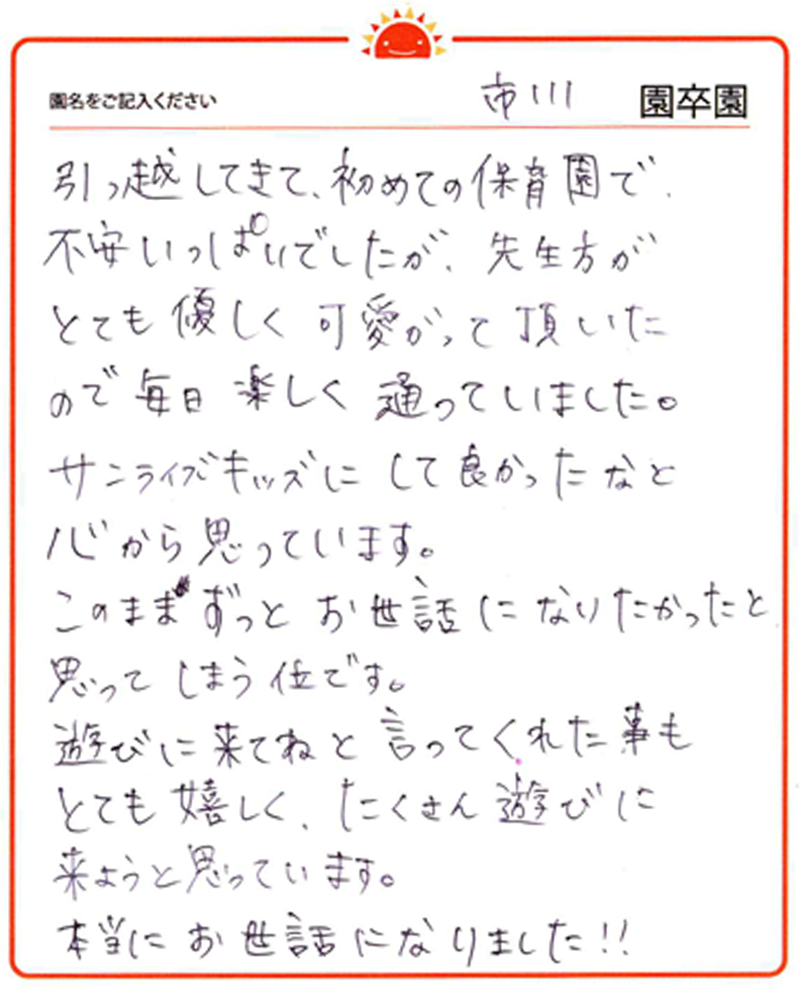 園名をご記入ください 市川 園卒園
引っ越してきて、初めての保育園で、
不安いっぱいでしたが、先生方が
とても優しく可愛がって頂いた
ので毎日楽しく通っていました。
サンライズキッズにして良かったなと
心から思っています。
このままずっとお世話になりたかったと
思ってしまう位です。
遊びに来てねと言ってくれた事も
とても嬉しく、たくさん遊びに
来ようと思っています。
本当にお世話になりました!!